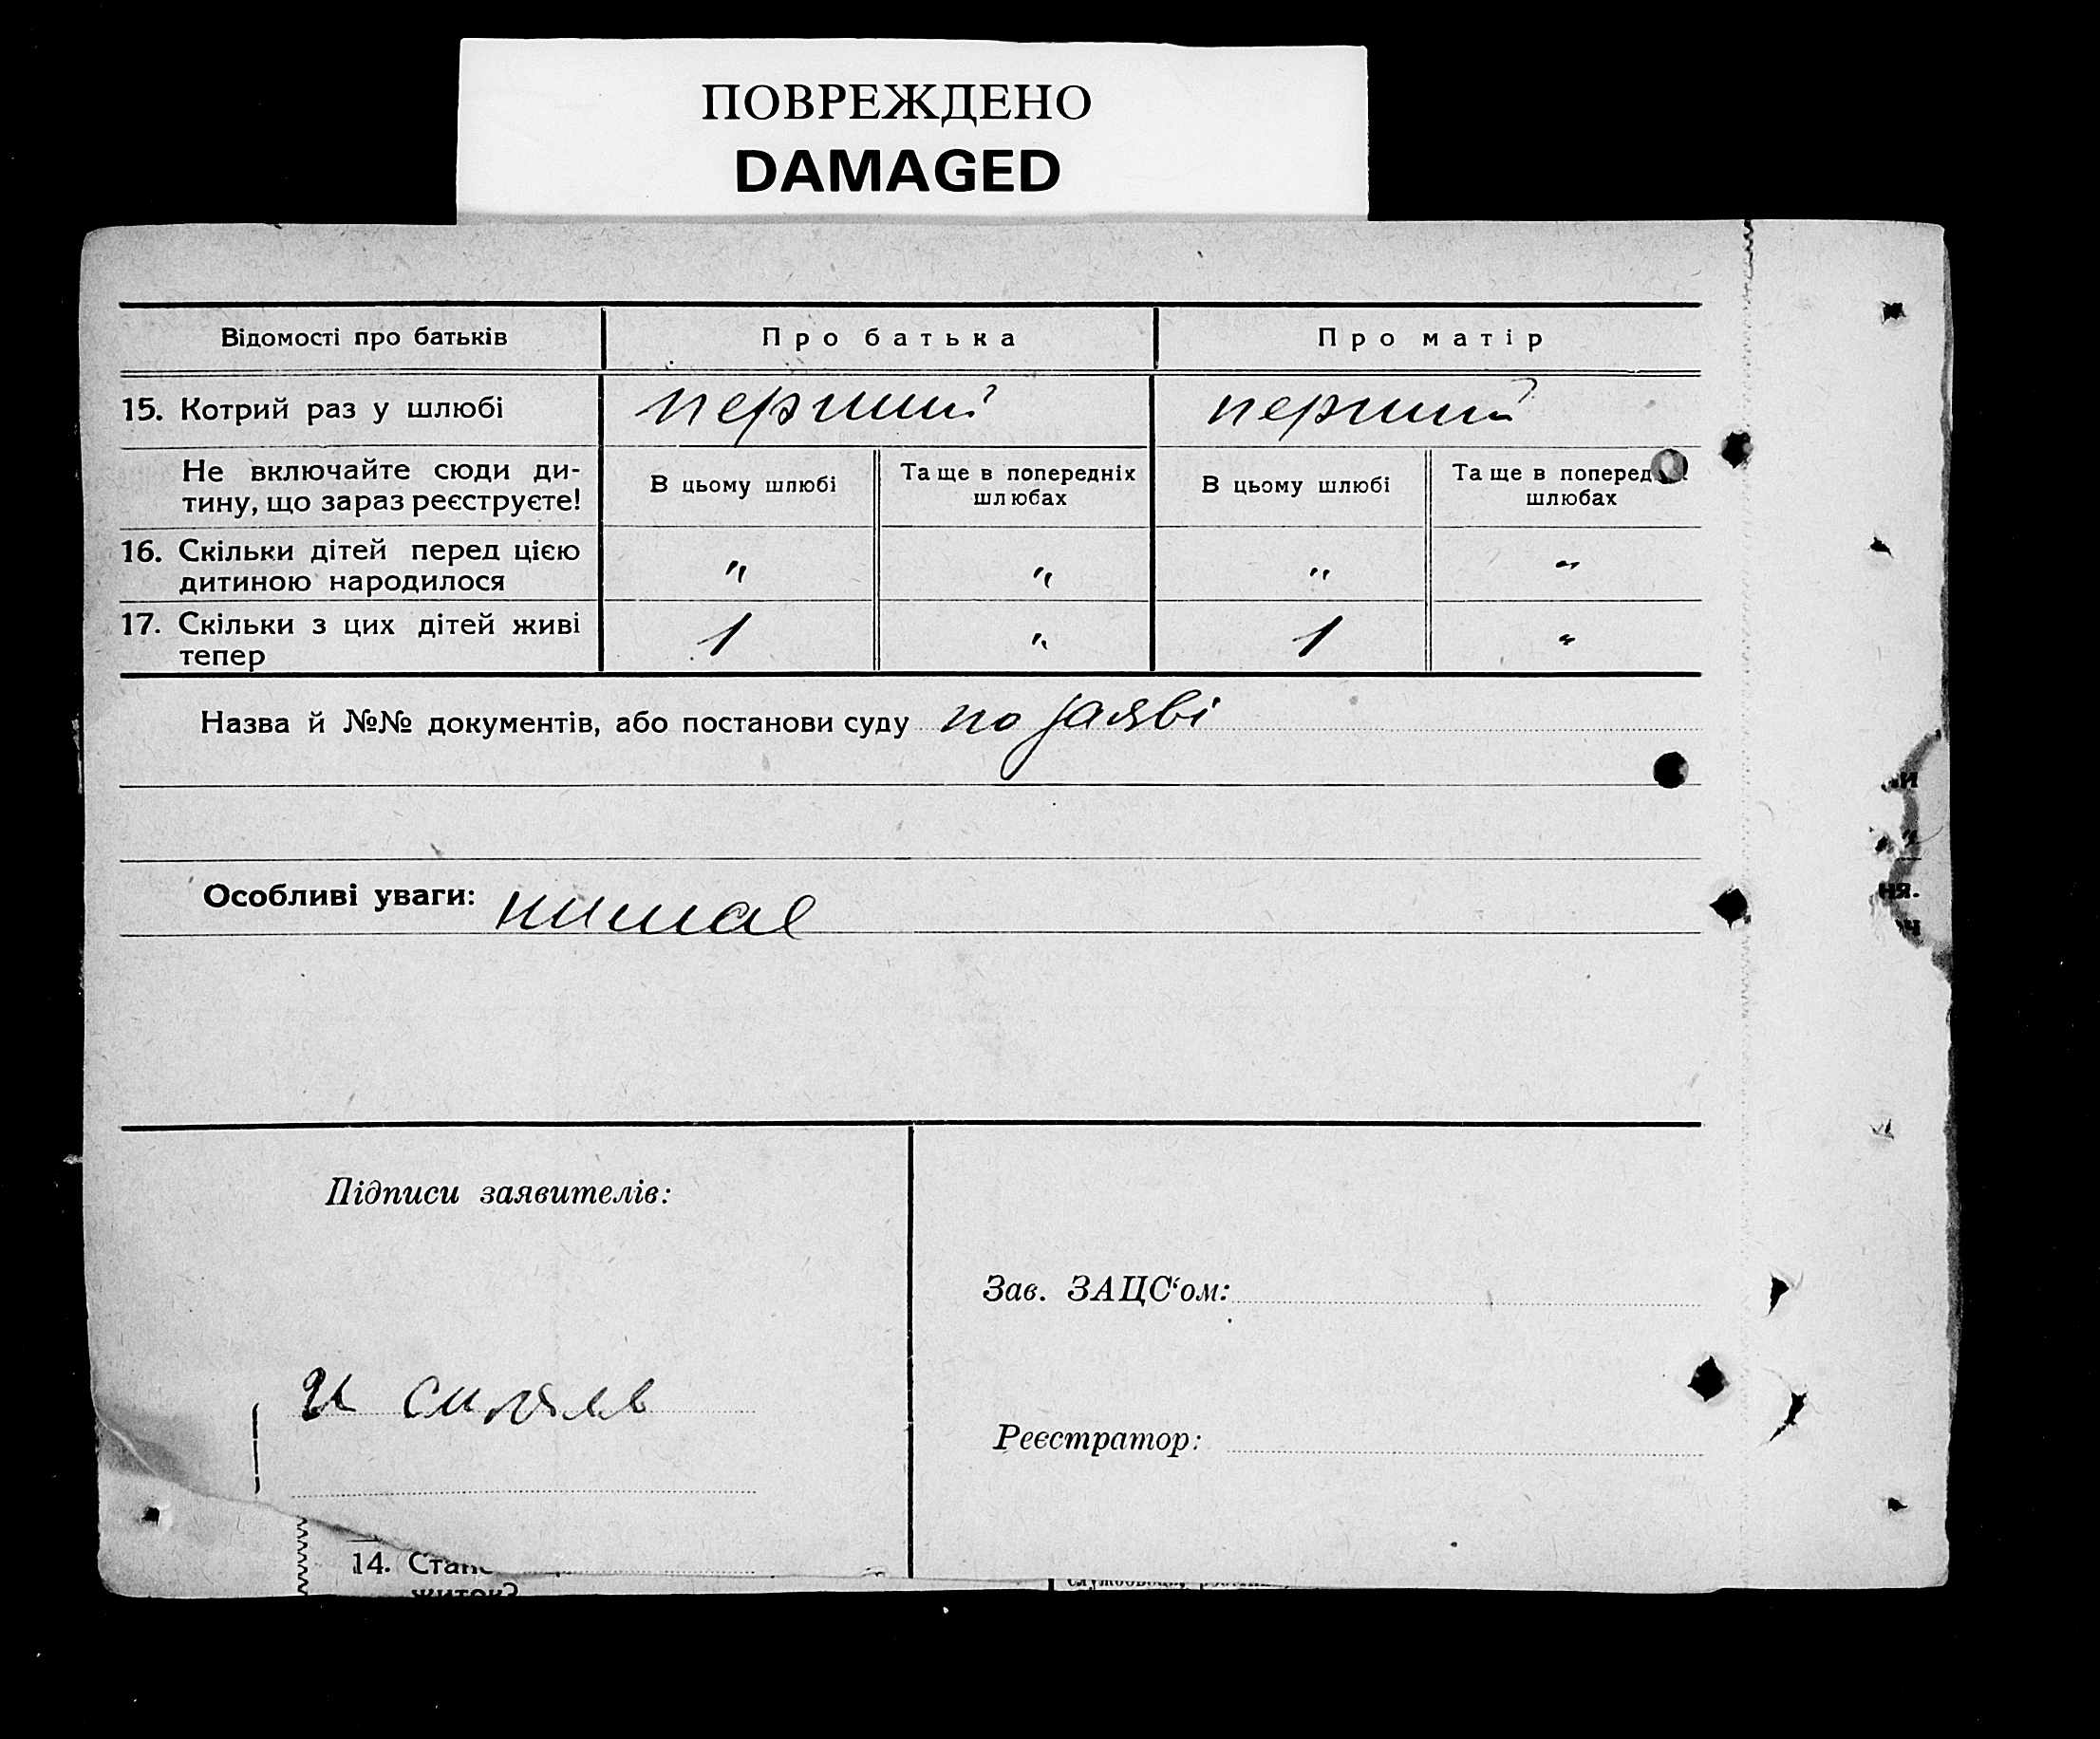 ПОВРЕЖДЕНО
DAMAGED
Відомості про батьків
Про батька
Про матір
15. Котрий раз у шлюбі
перший
перший
Не включайте сюди ди-
тину, що зараз реєструєте!
В цьому шлюбі
Та ще в попередніх
шлюбах
В цьому шлюбі
Та ще в поперед
шлюбах
16. Скільки дітей перед цією
дитиною народилося
" " " "
17. Скільки з цих дітей живі
тепер
1 " 1 "
Назва й №№ документів, або постанови суду по заяві
Особливі уваги: нимае
Підписи заявителів:
Зав. ЗАЦС‘ом:
Реєстратор:
14. Стан
житок?
ня.